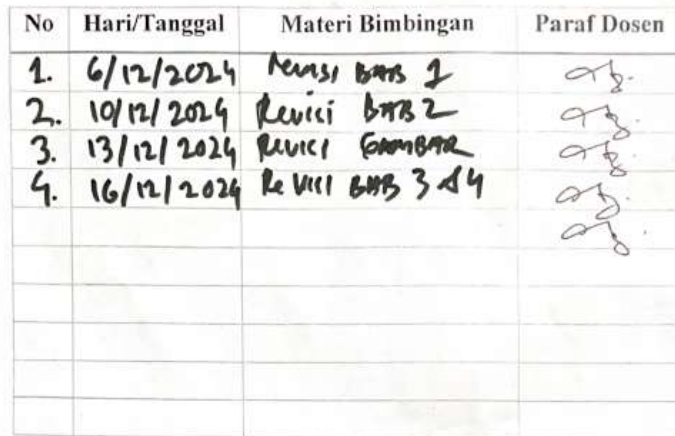 No Hari/Tanggal Materi Bimbingan Paraf Dosen
1. 6/12/2024 Revisi BAB 1
2. 10/12/2024 Revisi BAB 2
3. 13/12/2024 Revisi GAMBAR
4. 16/12/2024 Revisi BAB 3 & 4